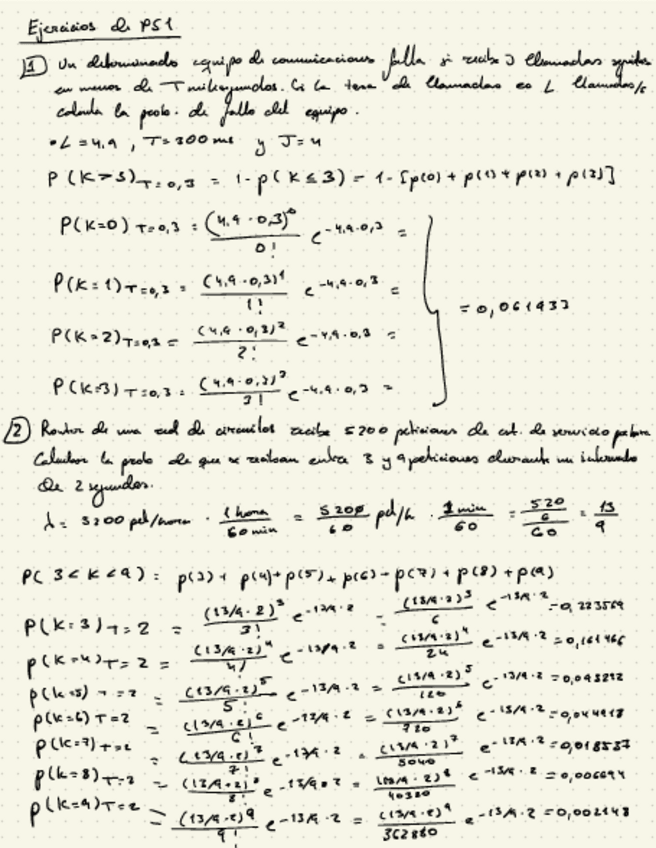 Ejercicios de PS1
1 Un determinado equipo de comunicaciones falla si recibe J llamadas seguidas
en menos de T milisegundos. Si la tasa de llamadas es L llamadas/s
calcula la prob. de fallo del equipo.
• L = 4.9 , T = 300 ms y J = 4
P(K>3) T=0,3 = 1 - p(K ≤ 3) = 1 - [p(0) + p(1) + p(2) + p(3)]
P(K=0) T=0,3 = (4,9 · 0,3)^0 / 0! e^-4,9·0,3 =
P(K=1) T=0,3 = (4,9 · 0,3)^1 / 1! e^-4,9·0,3 =
= 0,061933
P(K=2) T=0,3 = (4,9 · 0,3)^2 / 2! e^-4,9·0,3 =
P(K=3) T=0,3 = (4,9 · 0,3)^3 / 3! e^-4,9·0,3 =
2 Router de una red de circuitos recibe 5200 peticiones de est. de servicio
Calcular la prob de que se reciban entre 3 y 9 peticiones durante un intervalo
de 2 segundos.
λ = 5200 pet/hora · 1 hora / 60 min = 5200 / 60 pet/h · 1 min / 60 = 520/6 / 60 = 13/9
P( 3 < K < 9) = p(3) + p(4) + p(5) + p(6) + p(7) + p(8) + p(9)
P(K=3) T=2 = (13/9 · 2)^3 / 3! e^-13/9·2 = (13/9 · 2)^3 / 6 e^-13/9·2 = 0,223569
p(K=4) T=2 = (13/9 · 2)^4 / 4! e^-13/9·2 = (13/9 · 2)^4 / 24 e^-13/9·2 = 0,161466
p(K=5) T=2 = (13/9 · 2)^5 / 5! e^-13/9·2 = (13/9 · 2)^5 / 120 e^-13/9·2 = 0,093292
p(K=6) T=2 = (13/9 · 2)^6 / 6! e^-13/9·2 = (13/9 · 2)^6 / 720 e^-13/9·2 = 0,044918
p(K=7) T=2 = (13/9 · 2)^7 / 7! e^-13/9·2 = (13/9 · 2)^7 / 5040 e^-13/9·2 = 0,018537
p(K=8) T=2 = (13/9 · 2)^8 / 8! e^-13/9·2 = (13/9 · 2)^8 / 40320 e^-13/9·2 = 0,006694
p(K=9) T=2 = (13/9 · 2)^9 / 9! e^-13/9·2 = (13/9 · 2)^9 / 362880 e^-13/9·2 = 0,002148